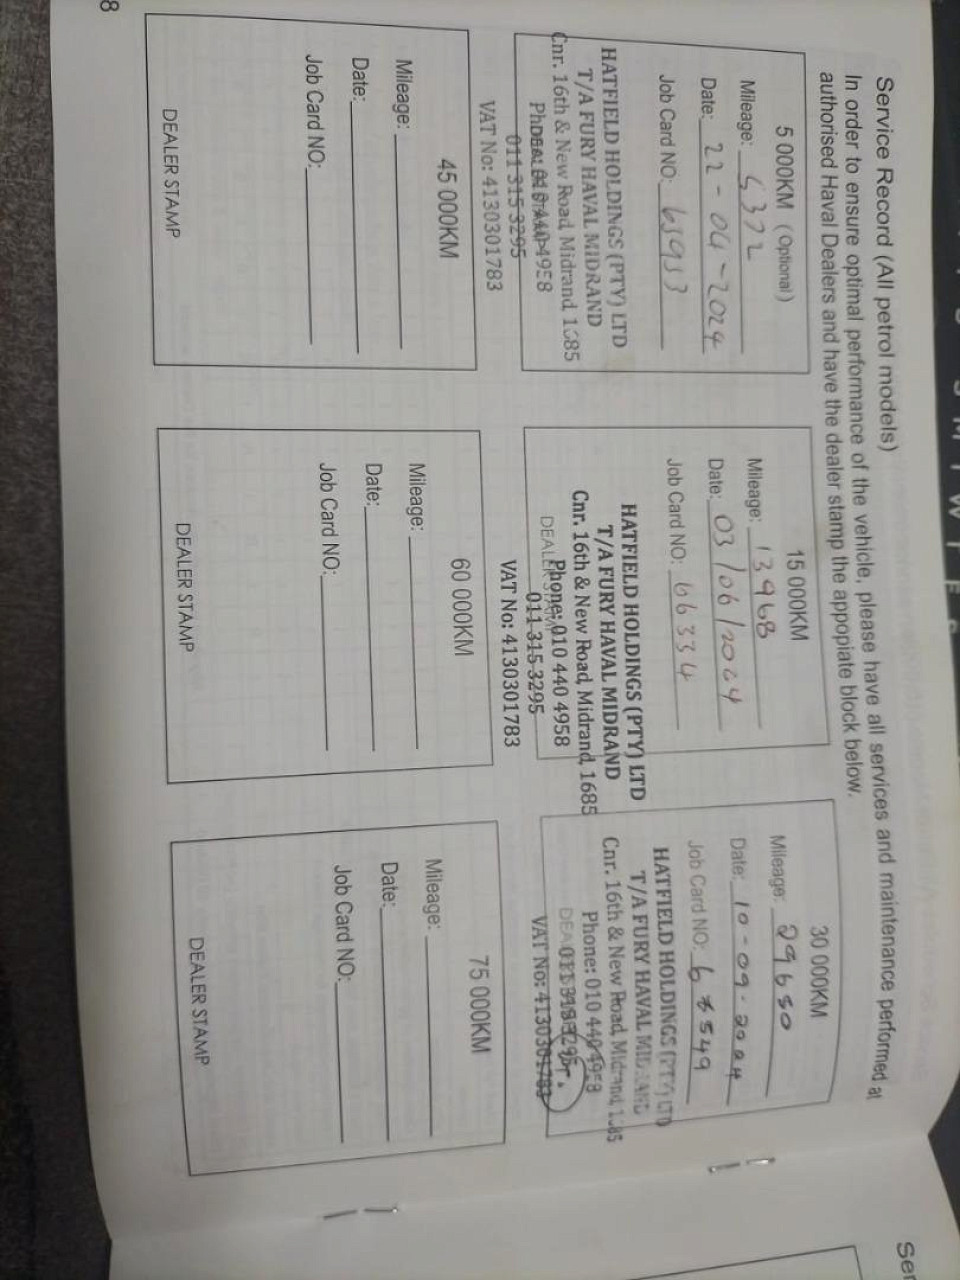 Service Record (All petrol models)
In order to ensure optimal performance of the vehicle, please have all services and maintenance performed at
authorised Haval Dealers and have the dealer stamp the appopiate block below.
5 000KM (Optional)
Mileage: 5372
Date: 22-04-2024
Job Card NO: 65953
HATFIELD HOLDINGS (PTY) LTD
T/A FURY HAVAL MIDRAND
Cnr. 16th & New Road, Midrand, 1685
Phone: 010 440 4958
011 315 3295
VAT No: 4130301783
15 000KM
Mileage: 13968
Date: 03/06/2024
Job Card NO: 66334
HATFIELD HOLDINGS (PTY) LTD
T/A FURY HAVAL MIDRAND
Cnr. 16th & New Road, Midrand, 1685
DEALER STAMP
Phone: 010 440 4958
011 315 3295
VAT No: 4130301783
30 000KM
Mileage: 29650
Date: 10-09-2024
Job Card NO:
HATFIELD HOLDINGS (PTY) LTD
T/A FURY HAVAL MIDRAND
Cnr. 16th & New Road, Midrand, 1685
Phone: 010 440 4958
011 315 3295
VAT No: 4130301783
45 000KM
Mileage:
Date:
Job Card NO:
DEALER STAMP
60 000KM
Mileage:
Date:
Job Card NO:
DEALER STAMP
75 000KM
Mileage:
Date:
Job Card NO:
DEALER STAMP
8
Ser